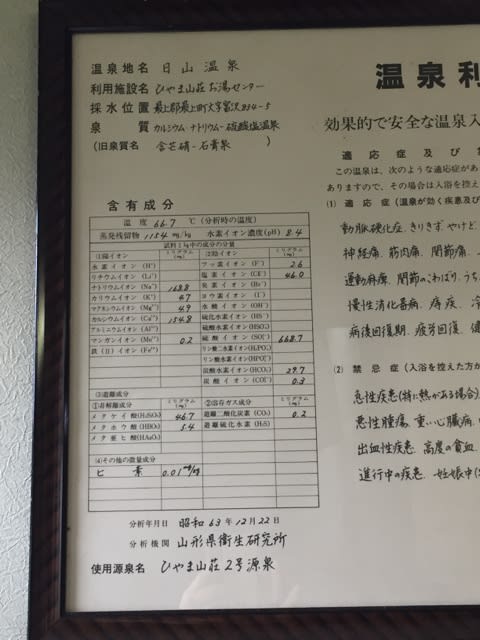 温泉地名 日山温泉
利用施設名 ひやま山荘お湯センター
採水位置 最上郡最上町大字富沢834-5
泉質 カルシウム-ナトリウム-硫酸塩温泉
(旧泉質名) 含芒硝-石膏泉
含有成分
温度 66.7 ℃ (分析時の温度)
蒸発残留物 1154 mg/kg 水素イオン濃度(pH) 8.4
試料1kg中の成分の分量
(1)陽イオン ミリグラム(mg) (2)陰イオン ミリグラム(mg)
水素イオン(H⁺) フッ素イオン(F⁻) 2.6
リチウムイオン(Li⁺) 塩素イオン(Cl⁻) 46.0
ナトリウムイオン(Na⁺) 168.8 臭素イオン(Br⁻)
カリウムイオン(K⁺) 4.7 ヨウ素イオン(I⁻)
マグネシウムイオン(Mg²⁺) 4.9 水酸イオン(OH⁻)
カルシウムイオン(Ca²⁺) 154.8 硫化水素イオン(HS⁻)
アルミニウムイオン(Al³⁺) 硫酸水素イオン(HSO₄⁻)
マンガンイオン(Mn²⁺) 0.2 硫酸イオン(SO₄²⁻) 668.7
鉄(II)イオン(Fe²⁺) リン酸二水素イオン(H₂PO₄⁻)
リン酸水素イオン(HPO₄²⁻)
炭酸水素イオン(HCO₃⁻) 29.7
炭酸イオン(CO₃²⁻) 0.3
(3)遊離成分
①非解離成分 ミリグラム(mg) ②溶存ガス成分 ミリグラム(mg)
メタケイ酸(H₂SiO₃) 46.7 遊離二酸化炭素(CO₂) 0.2
メタホウ酸(HBO₂) 5.4 遊離硫化水素(H₂S)
メタ亜ヒ酸(HAsO₂)
(4)その他の微量成分
ヒ素 0.01mg/kg
分析年月日 昭和63年12月22日
分析機関 山形県衛生研究所
使用源泉名 ひやま山荘2号源泉
温泉利
効果的で安全な温泉入
適応症及び禁
この温泉は、次のような適応症があ
ありますので、その場合は入浴を控え
(1) 適応症(温泉が効く疾患及び
動脈硬化症、きりきず、やけど
神経痛、筋肉痛、関節痛、
運動麻痺、関節のこわばり、うち
慢性消化器病、痔疾、冷
病後回復期、疲労回復、健
(2) 禁忌症(入浴を控えた方か
急性疾患(特に熱がある場合)
悪性腫瘍、重い心臓病、
出血性疾患、高度の貧血
進行中の疾患、妊娠中(